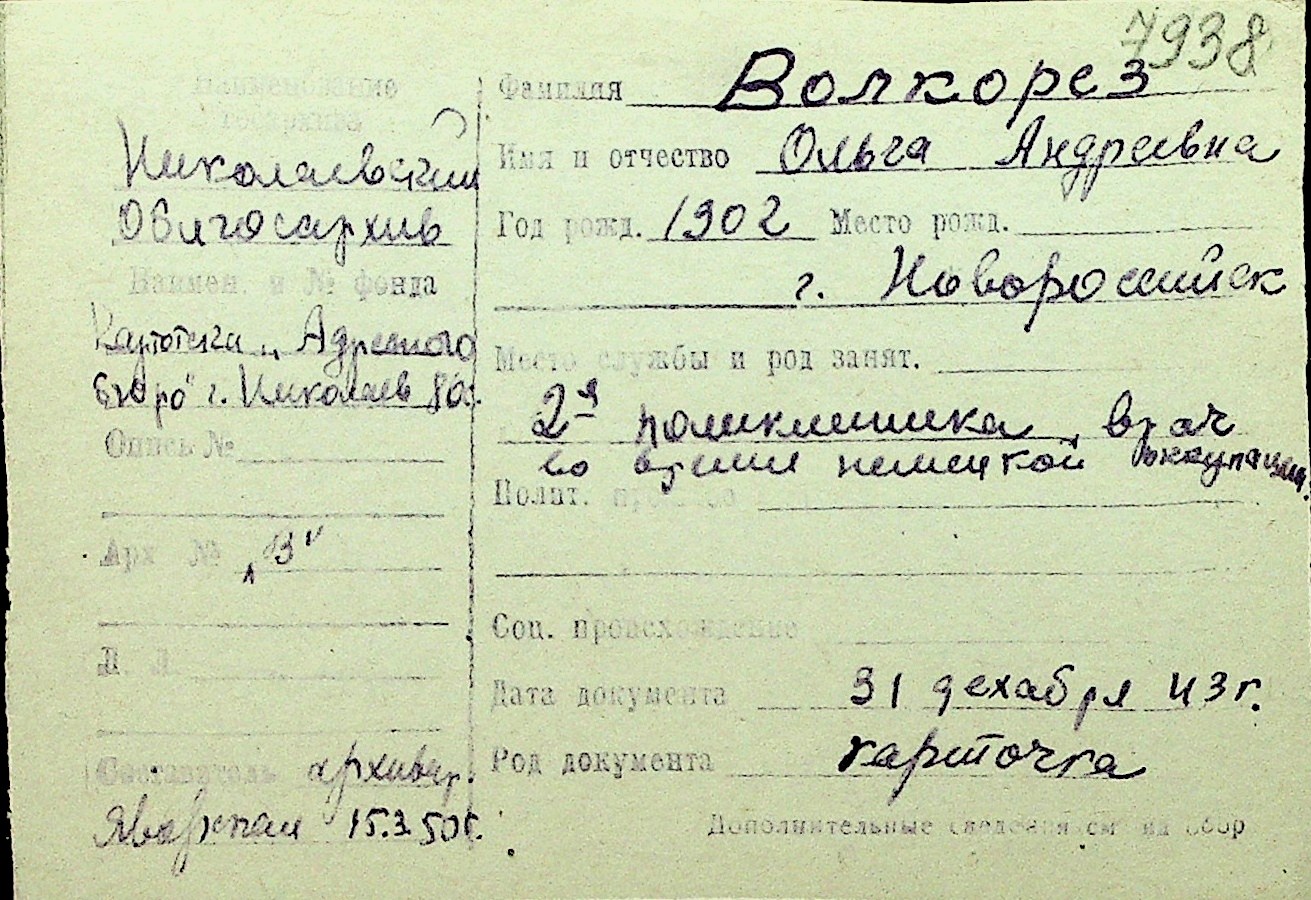 7938
Наименование
Госархива
Николаевский
Облгосархив
Наимен. и № фонда
Картотека „Адресного
бюро" г. Николаев
Опись №
Арх № „В"
Л. Л.
Составитель архивар.
15.3.50г.
Фамилия Волкорез
Имя и отчество Ольга Андреевна
Год рожд. 1902 Место рожд.
г. Новороссийск
Место службы и род занят.
2-я поликлиника, врач
во время немецкой оккупации.
Полит.
Соц. происхождение
Дата документа 31 декабря 43г.
Род документа карточка
Дополнительные сведения см на обор